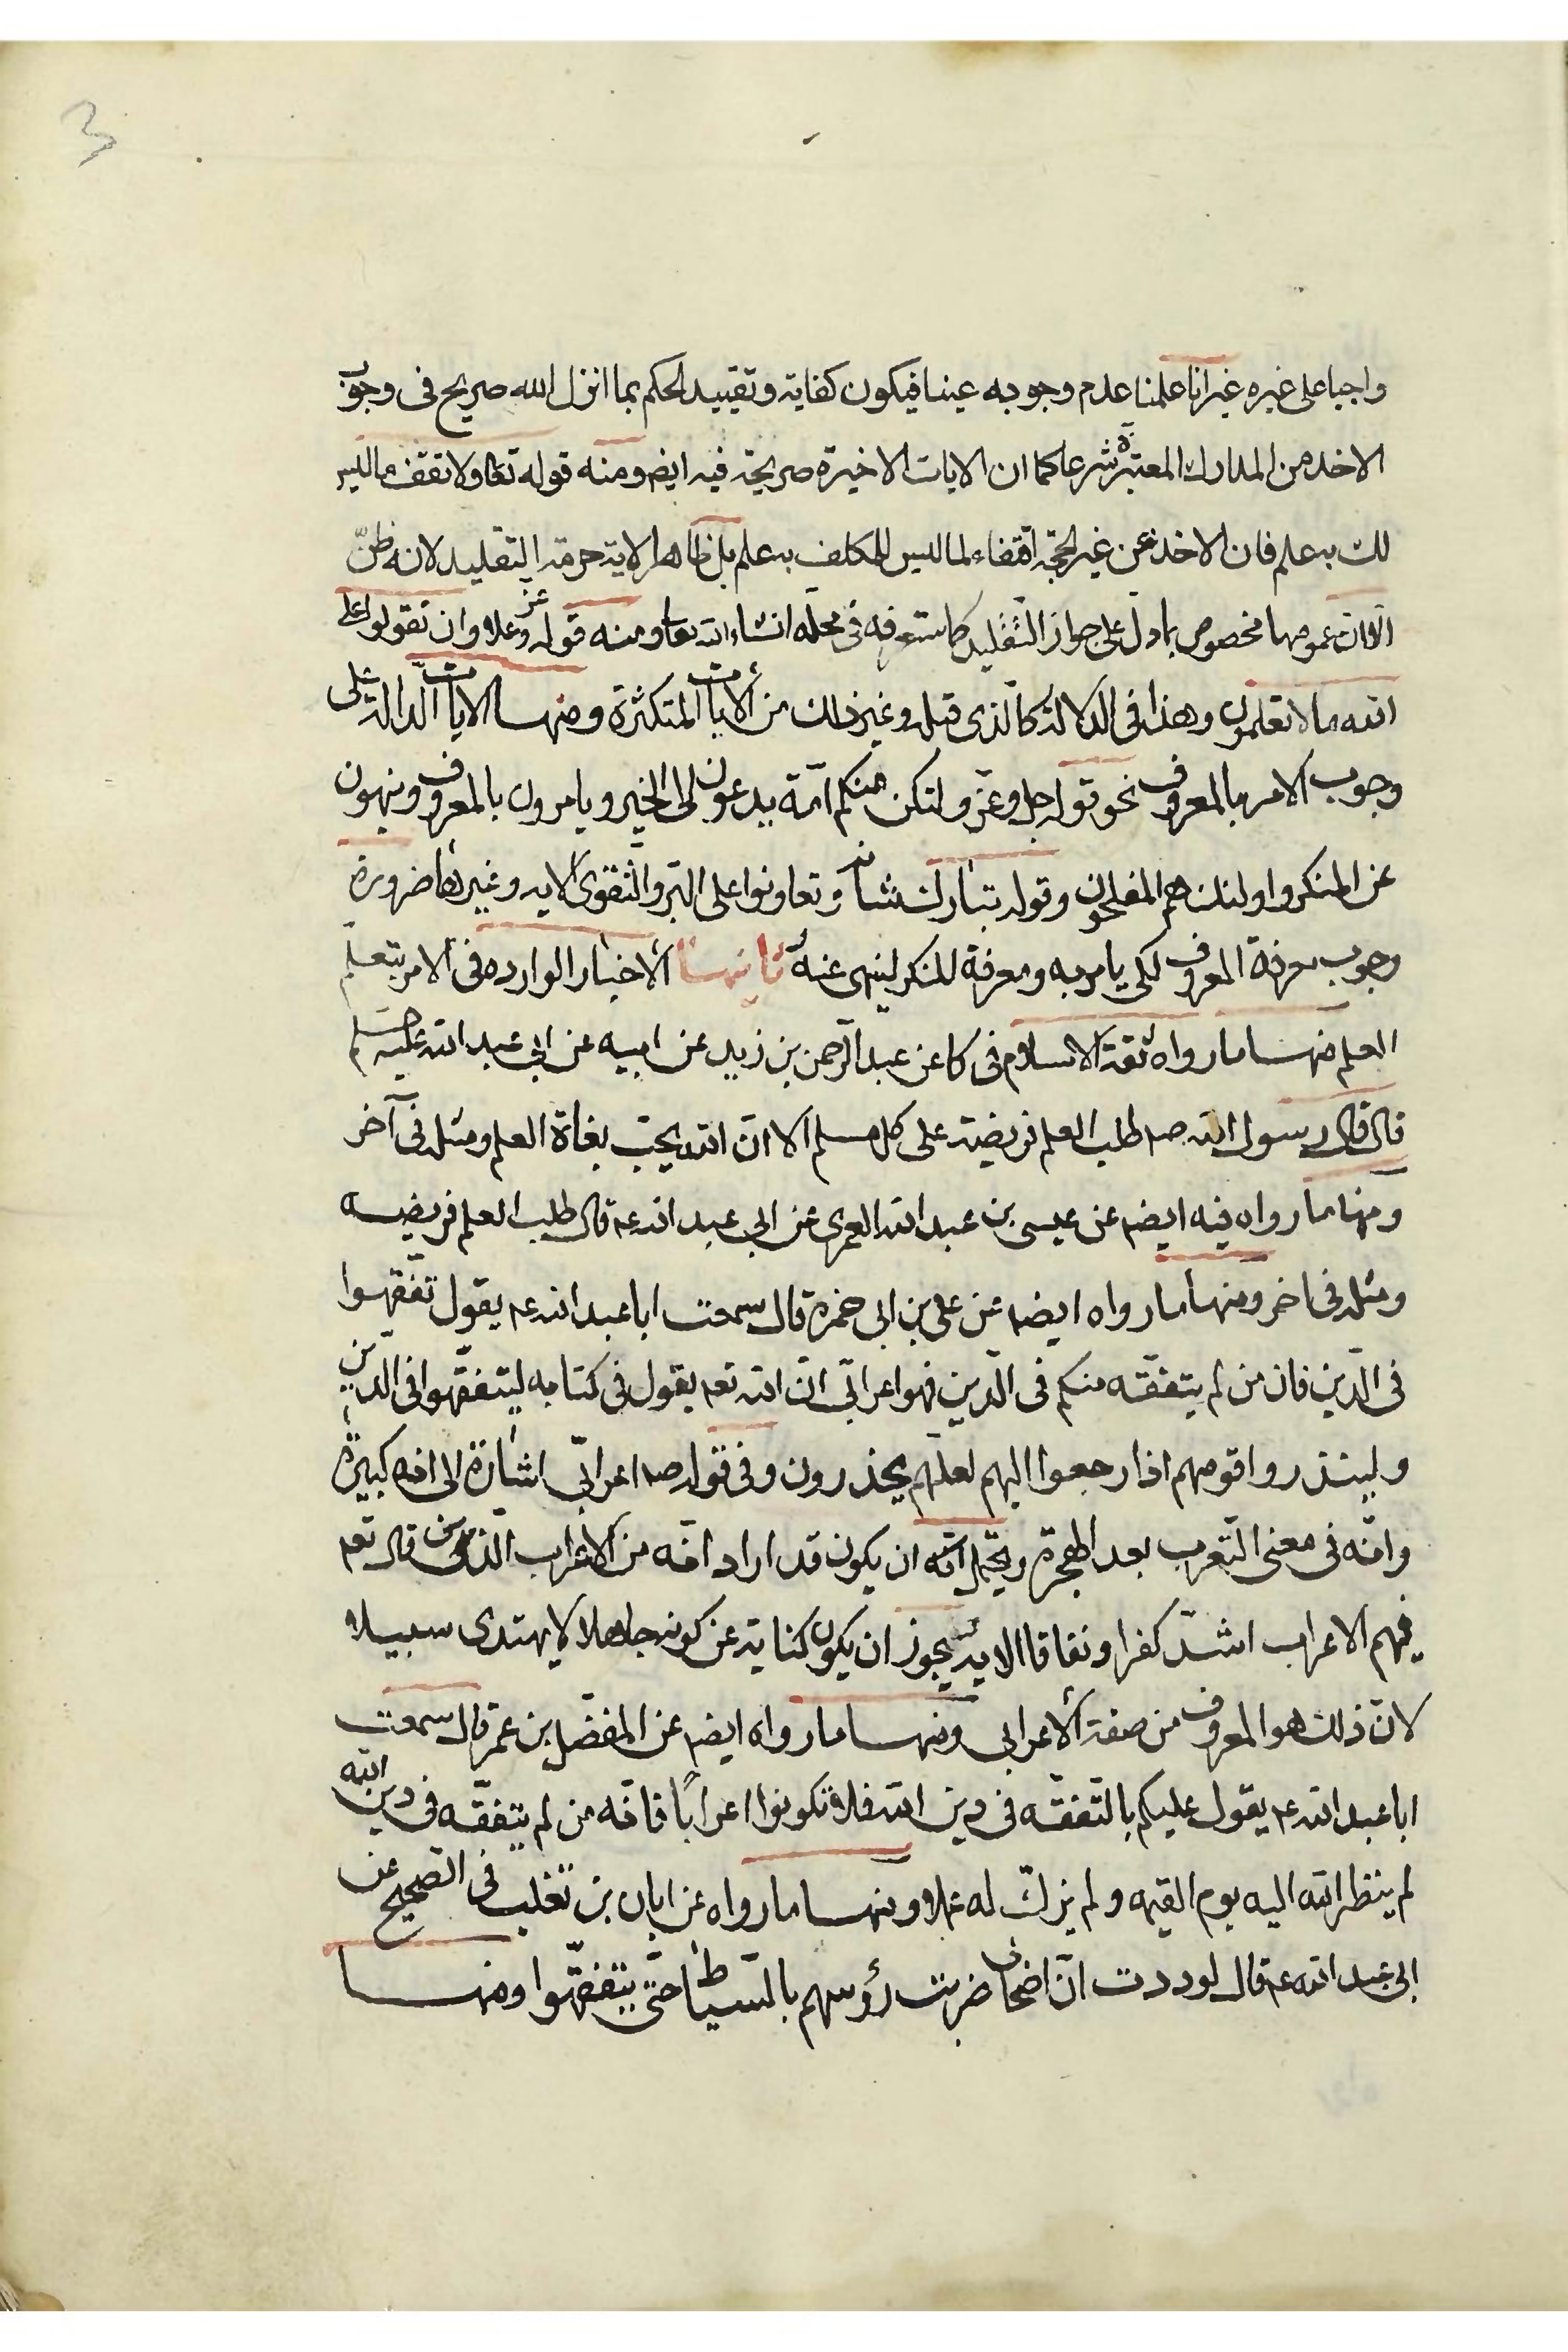 3
واجبا على غيره غير انا علمنا عدم وجوبه عينا فيكون كفاية وتقييد الحكم بما انزل الله صريح فى وجوب
الاخذ من المدارك المعتبرة شرعا كما ان الايات الاخيرة صريحة فيه ايضم ومنه قوله تعالى ولا تقف ما ليس
لك به علم فان الاخذ عن غير الحجة اقتفاء لما ليس للمكلف به علم بل ظاهر الاية حرمة التقليد لانه ظنّ
الّا ان عمومها مخصوص بما دل على جواز التّقليد كما ستعرفه فى محلّه انشاء الله تعالى ومنه قوله عز وعلا وان تقولوا على
الله ما لا تعلمون وهذا فى الدلالة كالّذى قبله وغير ذلك من الايات المتكثرة ومنها الايات الّدالة على
وجوب الامر بالمعروف نحو قوله جل وعزّ ولتكن منكم امّة يدعون الى الخير ويامرون بالمعروف وينهون
عن المنكر واولئك هم المفلحون وقوله تبارك شانه وتعاونوا على البّر والتّقوى الايه وغيرها ضرورة
وجوب معرفة المعروف لكى يامر به ومعرفة المنكر لينهى عنه ثانيها الاخبار الوارده فى الامر بتعلّم
العلم فمنها ما رواه ثقة الاسلام فى كا عن عبد الّرحمن بن زيد عن ابيه عن ابى عبد الله عليه السلم
قال قال رسول الله صم طلب العلم فريضة على كل مسلم الا انّ الله يحبّ بغاة العلم ومثله فى آخر
ومنها ما رواه فيه ايضم عن عيسى بن عبد الله العمرى عن ابى عبد الله عم قال طلب العلم فريضه
ومثله فى اخر ومنها ما رواه ايضم عن على بن ابى حمزة قال سمعت ابا عبد الله عم يقول تفّقهوا
فى الّدين فان من لم يتفقّه منكم فى الّدين فهو اعرابّى انّ الله تعم يقول فى كتابه ليتفقّهوا فى الّدين
ولينذروا قومهم اذا رجعوا اليهم لعلّهم يحذرون وفى قوله صم اعرابّى اشارة الى انه كبيرة
وانّه فى معنى التّعرب بعد الهجرة ويحتمل ان يكون قد اراد انّه من الاعراب الّذين قال تعم
فيهم الاعراب اشدّ كفرا ونفاقا الايه يجوز ان يكون كناية عن كونه جاهلا لا يهتدى سبيلا
لانّ ذلك هو المعروف من صفة الاعرابى ومنها ما رواه ايضم عن المفضّل بن عمر قال سمعت
ابا عبد الله عم يقول عليكم بالتّفقّه فى دين الله فلا تكونوا اعرابًا فانّه من لم يتفقّه فى دين الله
لم ينظر الله اليه يوم القيمه ولم يزكّ له عملا ومنها ما رواه عن ابان بن تغلب فى الصّحيح عن
ابى عبد الله عم قال لوددت انّ اصحابى ضربت رؤسهم بالسّياط حتّى يتفقّهوا ومنها